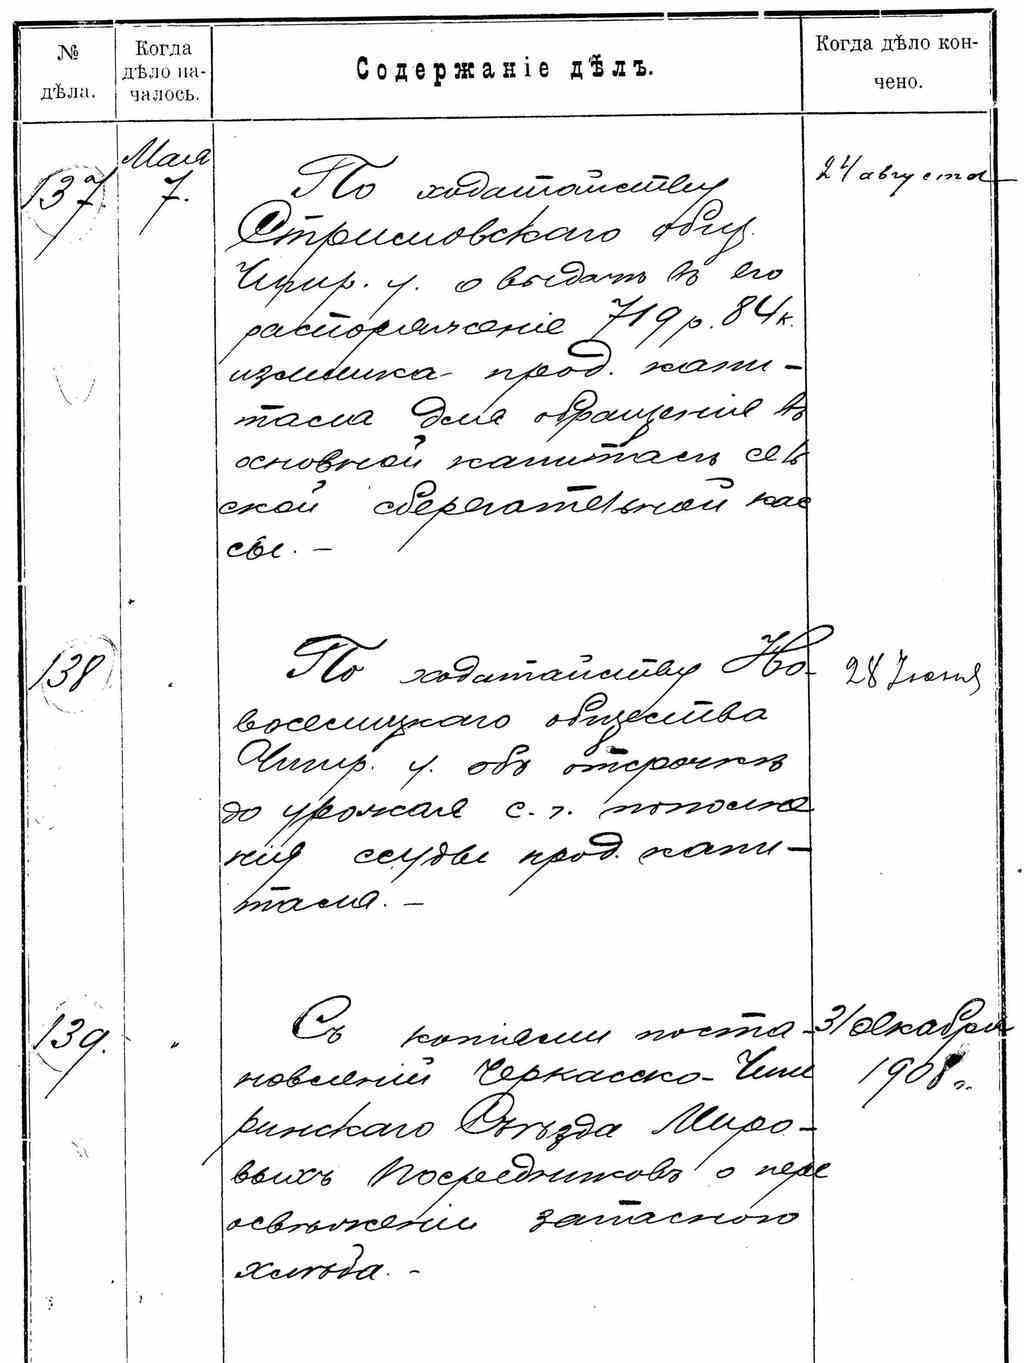 № дѣла.
Когда дѣло на-
чалось.
Содержаніе дѣлъ.
Когда дѣло кон-
чено.
137.
Мая
7.
По ходатайству
Стримовскаго общ.
Чигир. у. о выдачѣ въ его
распоряженіе 719 р. 84 к.
излишка прод. капи-
тала для обращенія въ
основной капиталъ сель
ской сберегательной кас
сы. –
24 августа
138
"
По ходатайству Но-
воселицкаго общества
Чигир. у. объ отсрочкѣ
до урожая с. г. пополне
нія ссуды прод. капи-
тала. –
28 Іюня
139.
"
Съ копіями поста-
новленій Черкасско-Чиги
ринскаго Съѣзда Миро-
выхъ Посредниковъ о пере
освѣженіи запасного
хлѣба. –
31 декабря
1908 г.